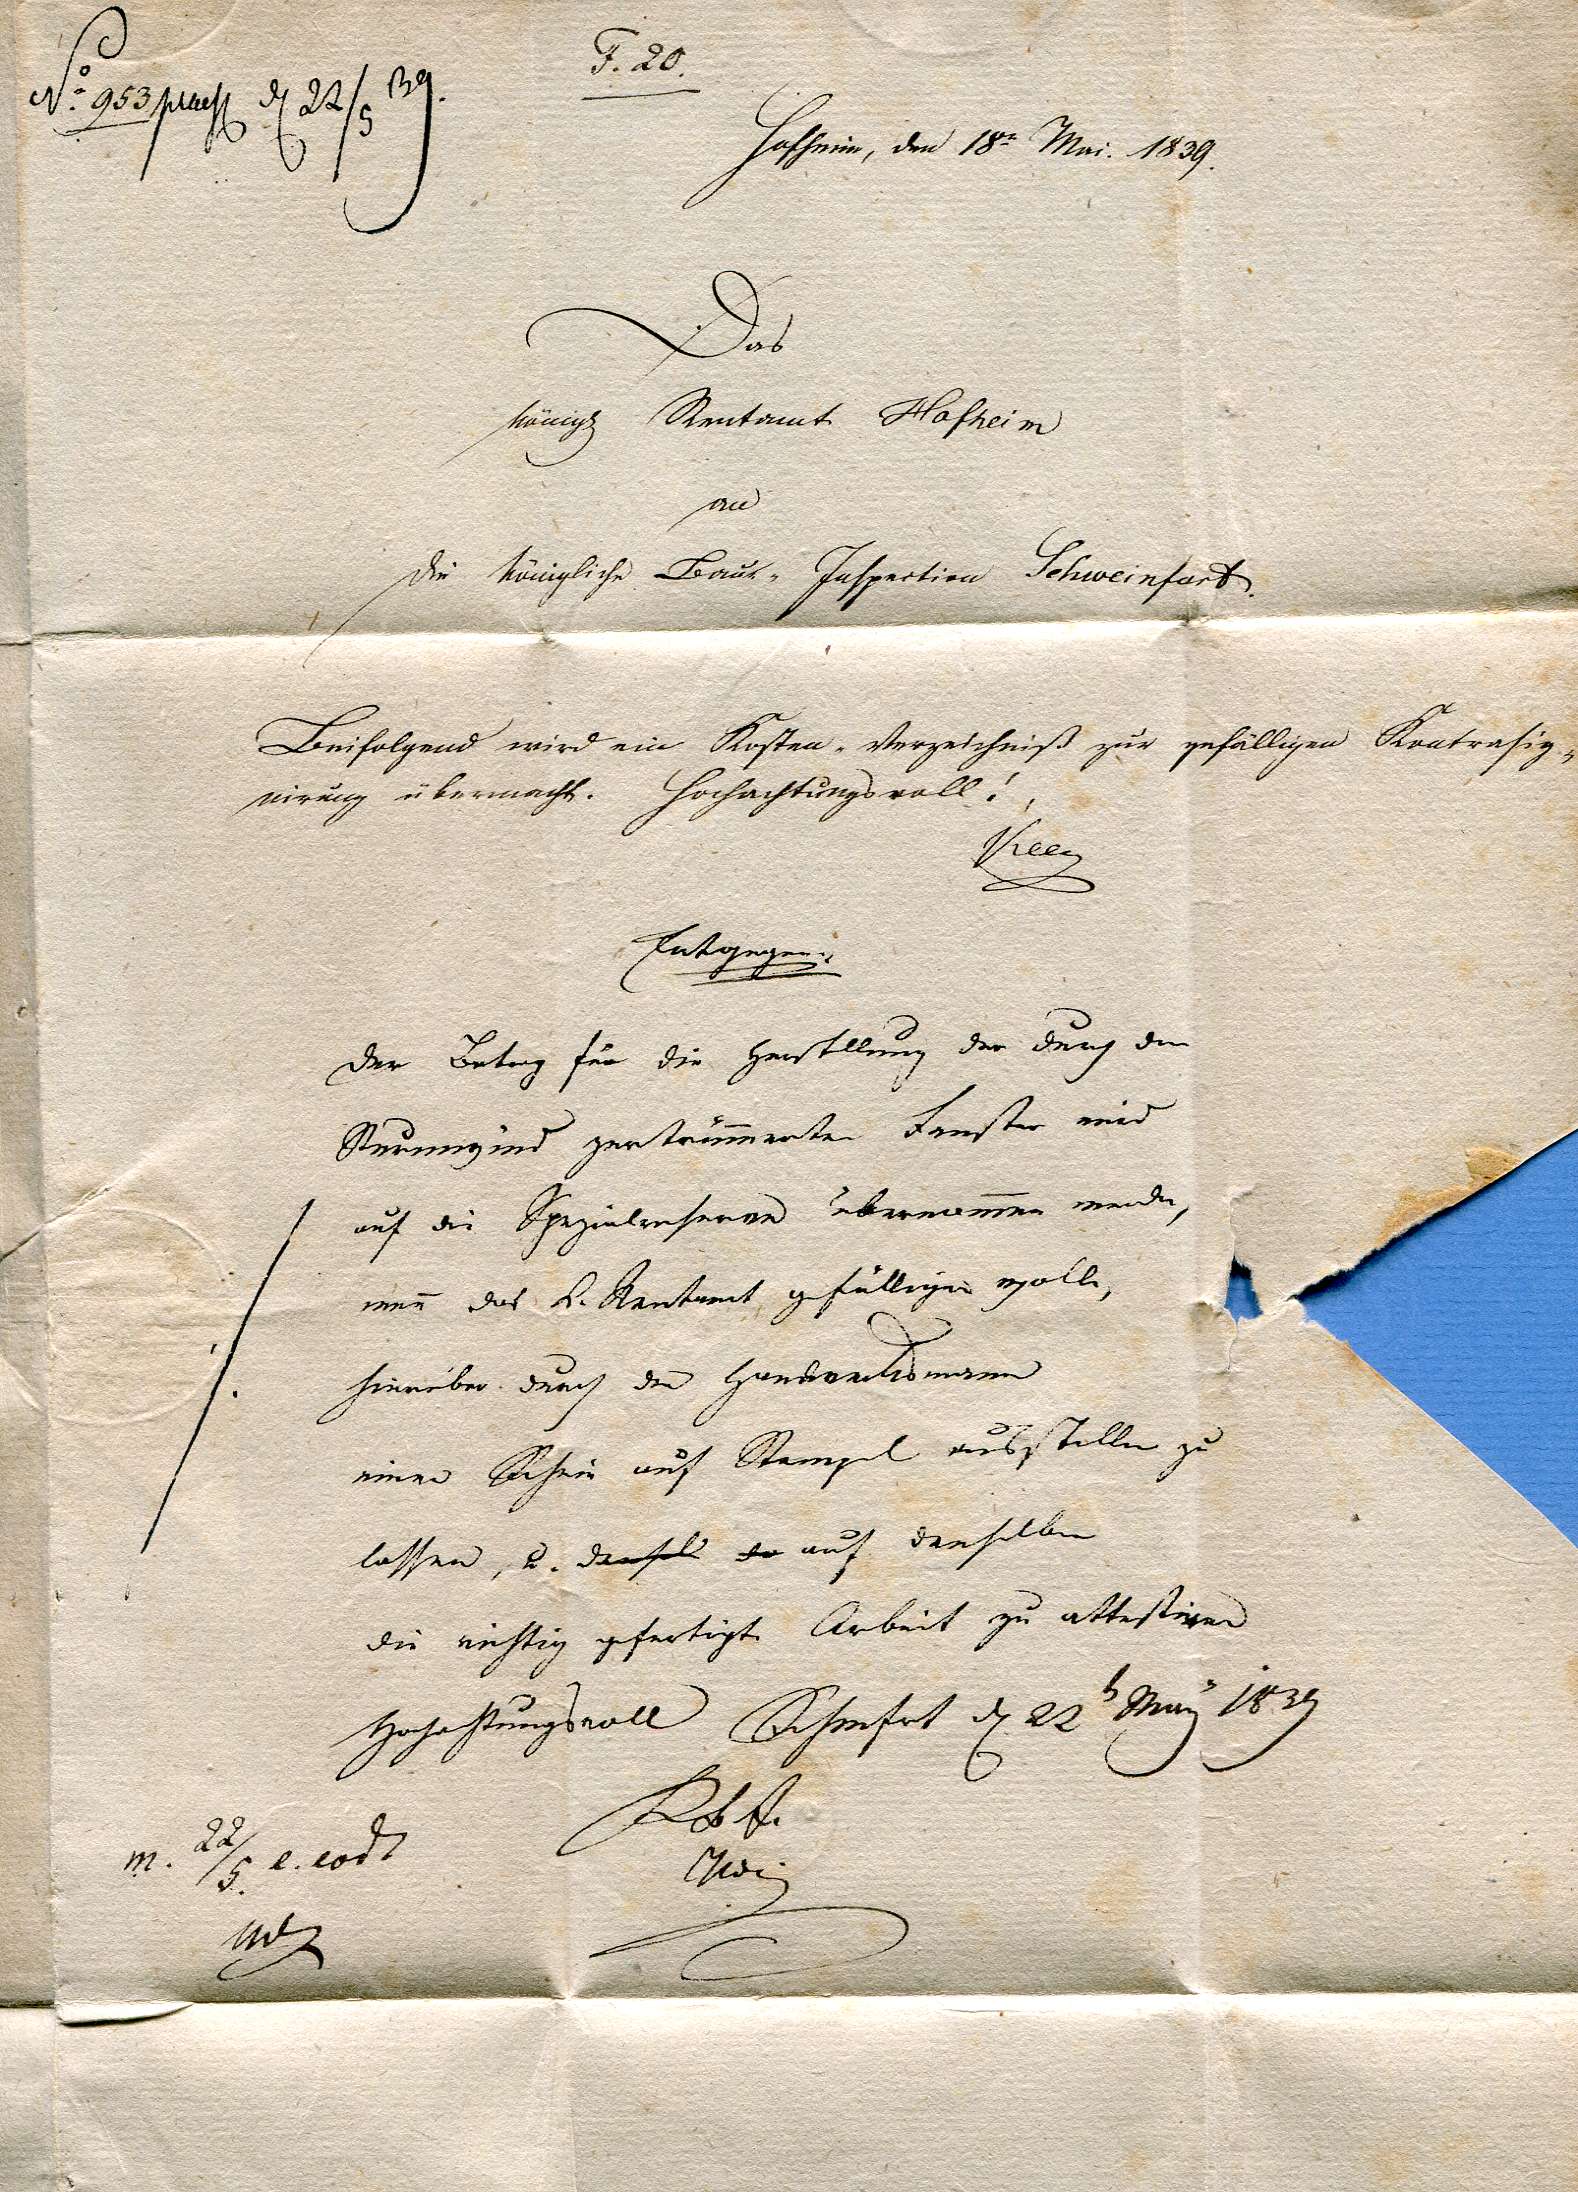 No. 953 praes. d 22/5 39.
F. 20.
Hofheim, den 18n Mai. 1839.
Das
königl Rentamt Hofheim
an
die königliche Bau-Inspection Schweinfurt.
Beifolgend wird ein Kosten-Verzeichniß zur gefälligen Kontrasig-
nirung übermacht. Hochachtungsvoll!
Entgegen.
Der Betrag für die Herstellung der durch den
Sturmwind zertrümmerten Fenster wird
auf die Spezialreserve übernommen werden,
wenn das k. Rentamt gefälligst wolle,
hierüber durch den Handwerksmann
einen Schein auf Stempel ausstellen zu
lassen, u. auf denselben
die richtig gefertigte Arbeit zu attestiren
Hochachtungsvoll Schwfrt d 22 May 1839
m. 22/5. e. eod